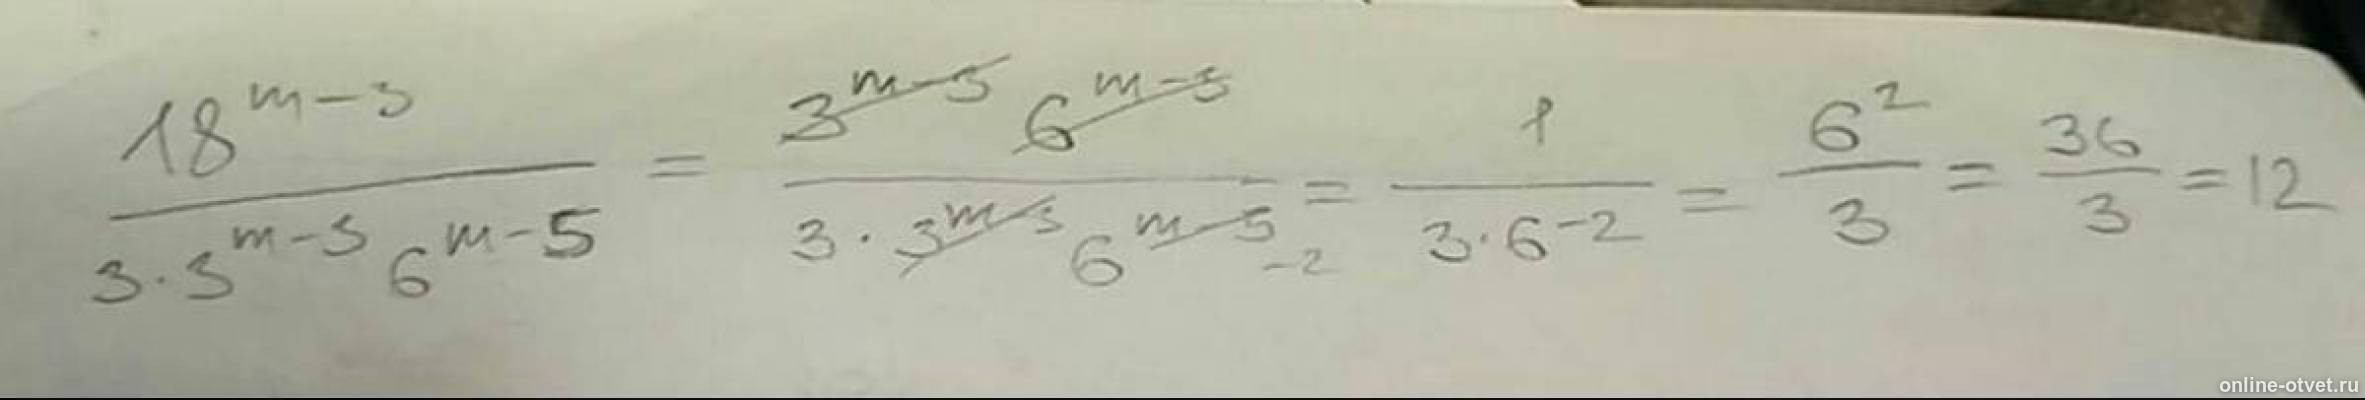 18^{m-3} / 3·3^{m-3} 6^{m-5} = 3^{m-3} 6^{m-3} / 3·3^{m-3} 6^{m-5} -2 = 1 / 3·6^{-2} = 6^2 / 3 = 36 / 3 = 12
online-otvet.ru